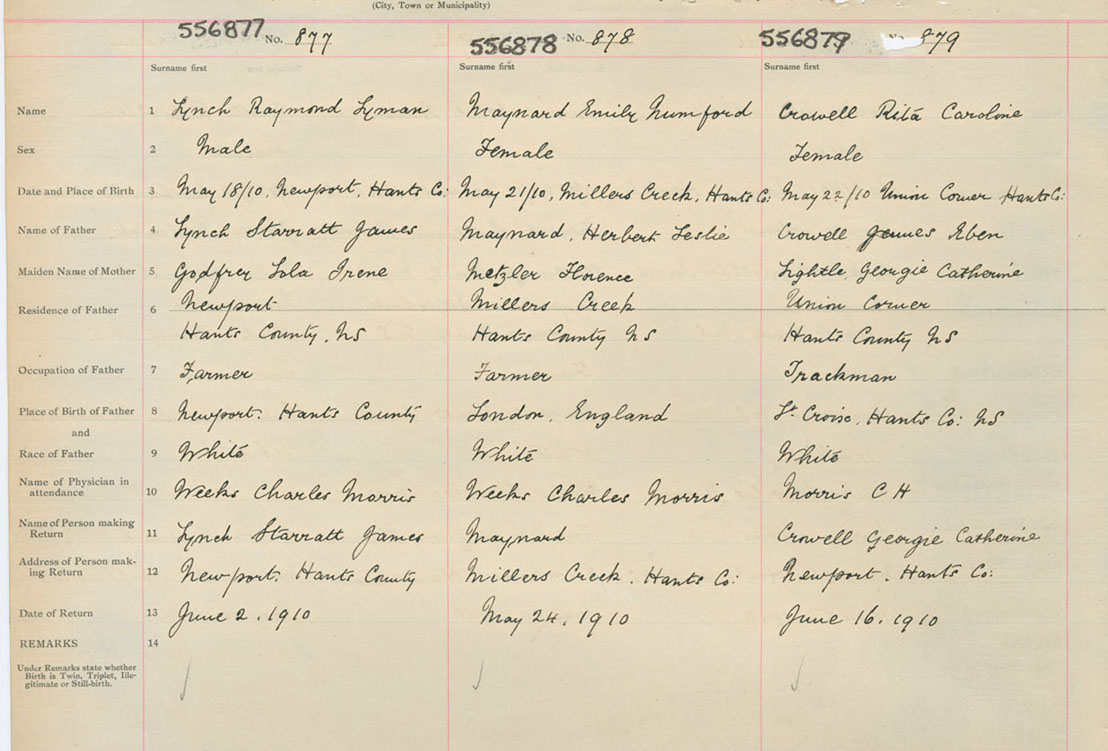 (City, Town or Municipality)
556877 No. 877 556878 No. 878 556879 No. 879
Surname first Surname first Surname first
Name 1 Lynch Raymond Lyman Maynard Emily Mumford Crowell Rita Caroline
Sex 2 Male Female Female
Date and Place of Birth 3 May 18/10, Newport, Hants Co: May 21/10, Millers Creek, Hants Co: May 22/10 Union Corner Hants Co:
Name of Father 4 Lynch Starratt James Maynard, Herbert Leslie Crowell James Eben
Maiden Name of Mother 5 Godfrey Lola Irene Metzler Florence Lightle, Georgie Catherine
Residence of Father 6 Newport Millers Creek Union Corner
Hants County, NS Hants County NS Hants County NS
Occupation of Father 7 Farmer Farmer Trackman
Place of Birth of Father 8 Newport. Hants County London, England St. Croix, Hants Co: NS
and
Race of Father 9 White White White
Name of Physician in
attendance 10 Weeks Charles Morris Weeks Charles Morris Morris C H
Name of Person making
Return 11 Lynch Starratt James Maynard Crowell Georgie Catherine
Address of Person mak-
ing Return 12 Newport. Hants County Millers Creek. Hants Co: Newport. Hants Co:
Date of Return 13 June 2, 1910 May 24, 1910 June 16, 1910
REMARKS 14
Under Remarks state whether
Birth is Twin, Triplet, Ille-
gitimate or Still-birth.